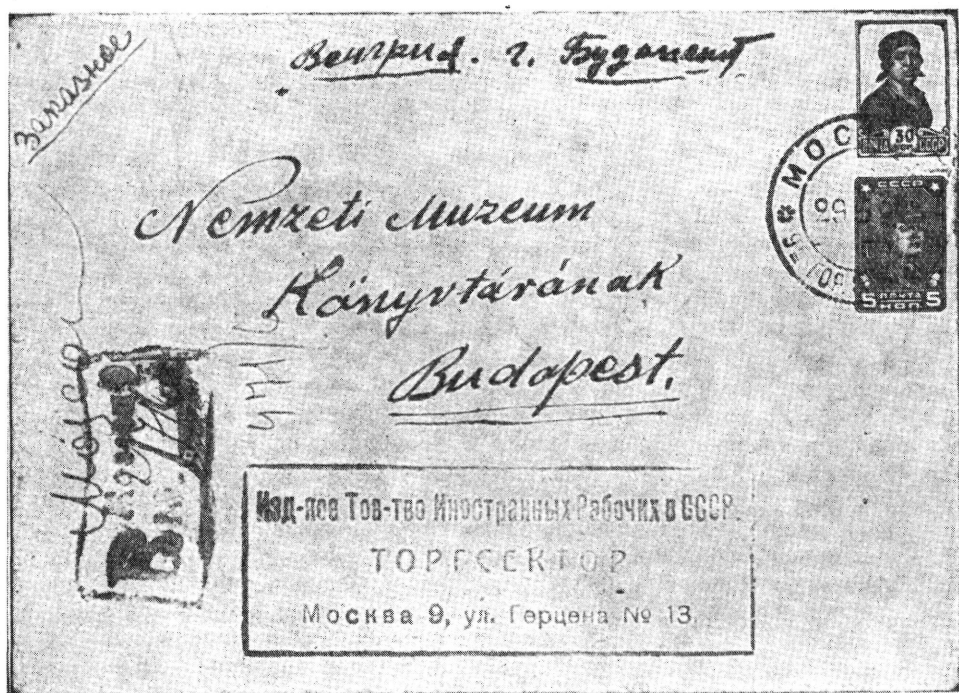 Заказное
Венгрия. г. Будапешт
30
ПОЧТА СССР
МОС
СССР
5 ПОЧТА 5
КОП
Nemzeti Muzeum
Könyvtárának
Budapest.
Изд-пое Тов-тво Иностранных Рабочих в СССР.
ТОРГСЕКТОР
Москва 9, ул. Герцена № 13.